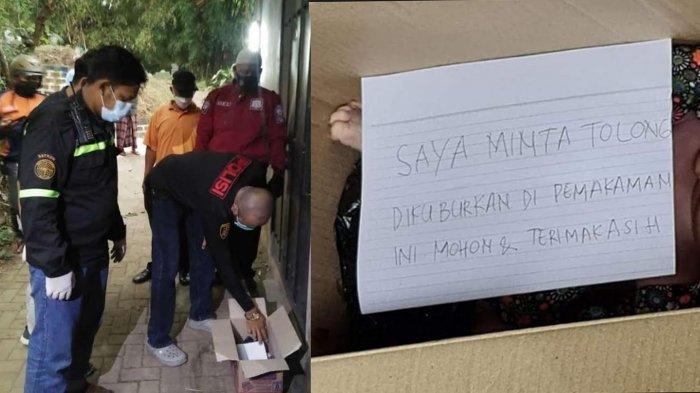 POLISI
SAYA MINTA TOLONG
DIKUBURKAN DI PEMAKAMAN
INI MOHON & TERIMAKASIH